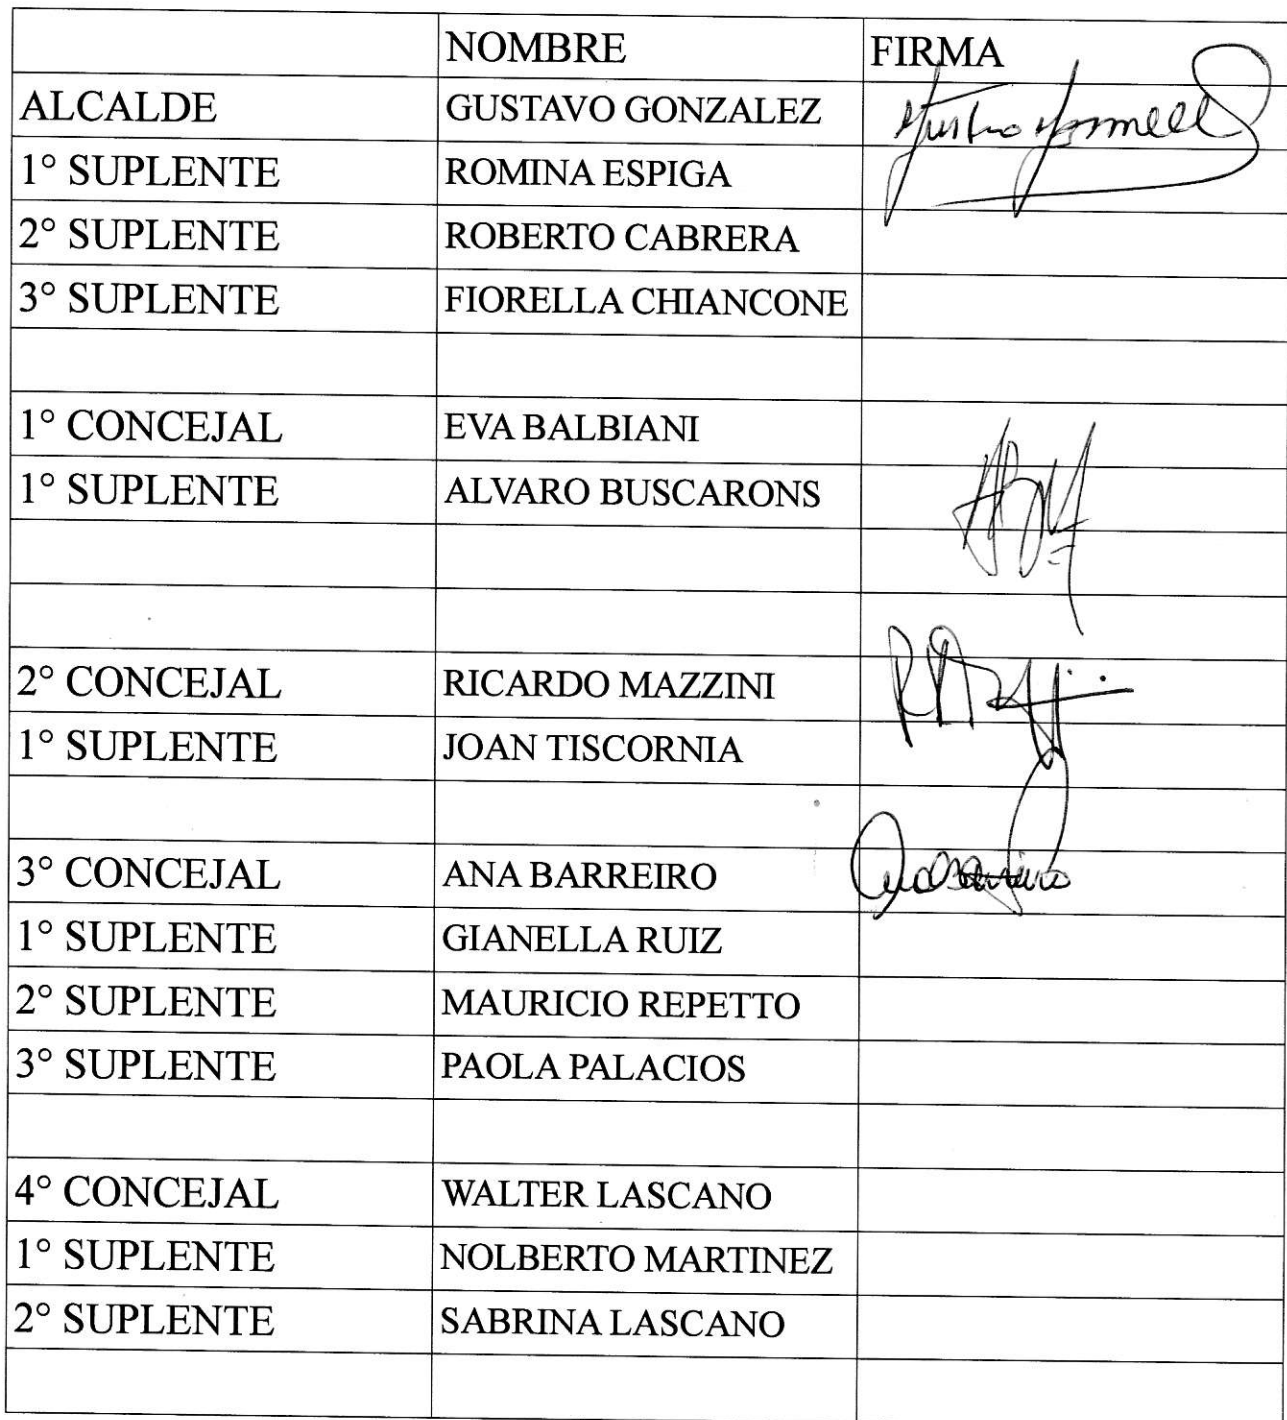 NOMBRE FIRMA
ALCALDE GUSTAVO GONZALEZ
1° SUPLENTE ROMINA ESPIGA
2° SUPLENTE ROBERTO CABRERA
3° SUPLENTE FIORELLA CHIANCONE
1° CONCEJAL EVA BALBIANI
1° SUPLENTE ALVARO BUSCARONS
2° CONCEJAL RICARDO MAZZINI
1° SUPLENTE JOAN TISCORNIA
3° CONCEJAL ANA BARREIRO
1° SUPLENTE GIANELLA RUIZ
2° SUPLENTE MAURICIO REPETTO
3° SUPLENTE PAOLA PALACIOS
4° CONCEJAL WALTER LASCANO
1° SUPLENTE NOLBERTO MARTINEZ
2° SUPLENTE SABRINA LASCANO